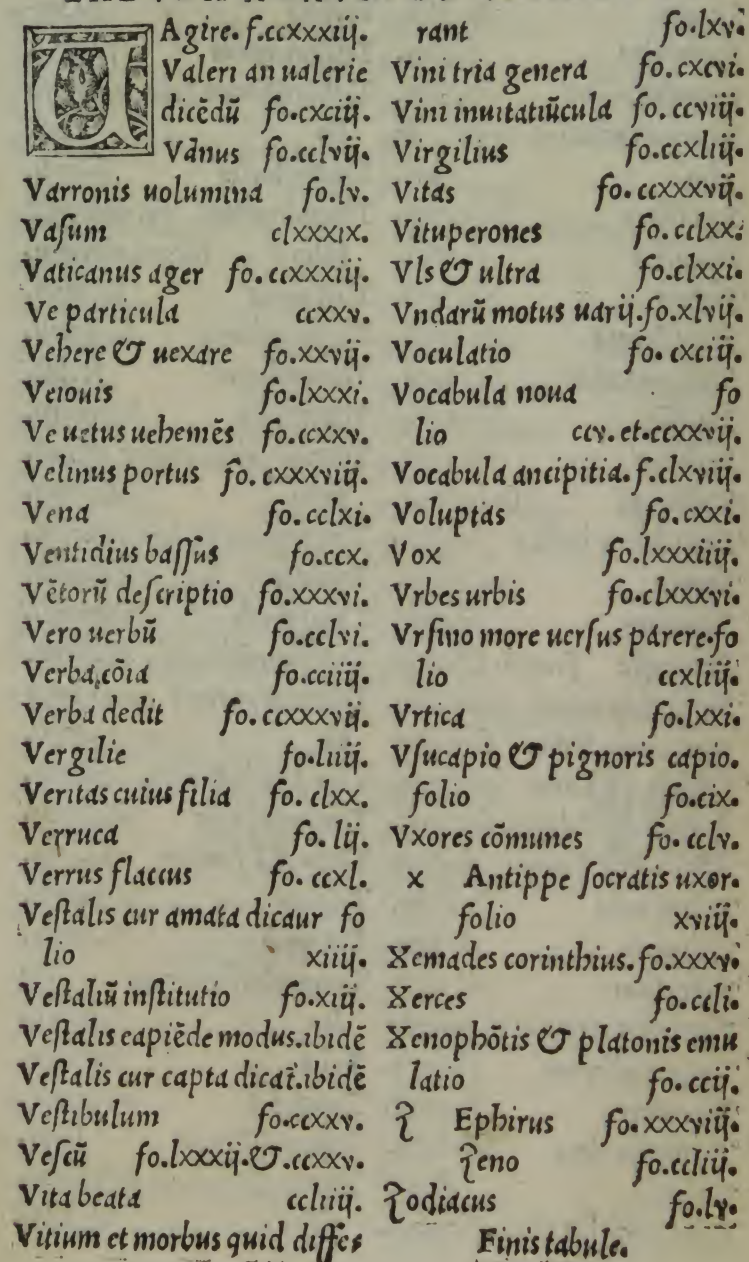 VAgire. f.ccxxxiij.
Valeri an ualerie
dicēdū fo.cxciij.
Vanus fo.cclvij.
Varronis uolumina fo.lv.
Vasum clxxxix.
Vaticanus ager fo.ccxxxiij.
Ve particula ccxxv.
Vehere & uexare fo.xxvij.
Veiouis fo.lxxxi.
Ve uetus uehemēs fo.ccxxv.
Velinus portus fo.cxxxviij.
Vena fo.cclxi.
Ventidius bassus fo.ccx.
Vētorū descriptio fo.xxxvi.
Vero uerbū fo.cclvi.
Verba cōia fo.cciiij.
Verba dedit fo.ccxxxvij.
Vergilie fo.liiij.
Veritas cuius filia fo.clxx.
Verruca fo.lij.
Verrus flaccus fo.ccxl.
Vestalis cur amata dicaur fo
lio xiiij.
Vestaliū institutio fo.xiij.
Vestalis capiēde modus.ibidē
Vestalis cur capta dicat̄.ibidē
Vestibulum fo.ccxxv.
Vescū fo.lxxxij.&.ccxxv.
Vita beata ccliiij.
Vitium et morbus quid diffes
rant fo.lxv.
Vini tria genera fo.cxcvi.
Vini inuitatiūcula fo.ccviij.
Virgilius fo.ccxliij.
Vitas fo.ccxxxvij.
Vituperones fo.cclxx.
Vls & ultra fo.clxxi.
Vndarū motus uarij.fo.xlvij.
Voculatio fo.cxciij.
Vocabula noua fo
lio ccv.et.ccxxvij.
Vocabula ancipitia.f.clxviij.
Voluptas fo.cxxi.
Vox fo.lxxxiiij.
Vrbes urbis fo.clxxxvi.
Vrsino more uersus parere.fo
lio ccxliij.
Vrtica fo.lxxi.
Vsucapio & pignoris capio.
folio fo.cix.
Vxores cōmunes fo.cclv.
x Antippe socratis uxor.
folio xviij.
Xemades corinthius.fo.xxxv.
Xerces fo.ccli.
Xenophōtis & platonis emu
latio fo.ccij.
Z Ephirus fo.xxxviij.
Zeno fo.ccliij.
Zodiacus fo.lv.
Finis tabule.